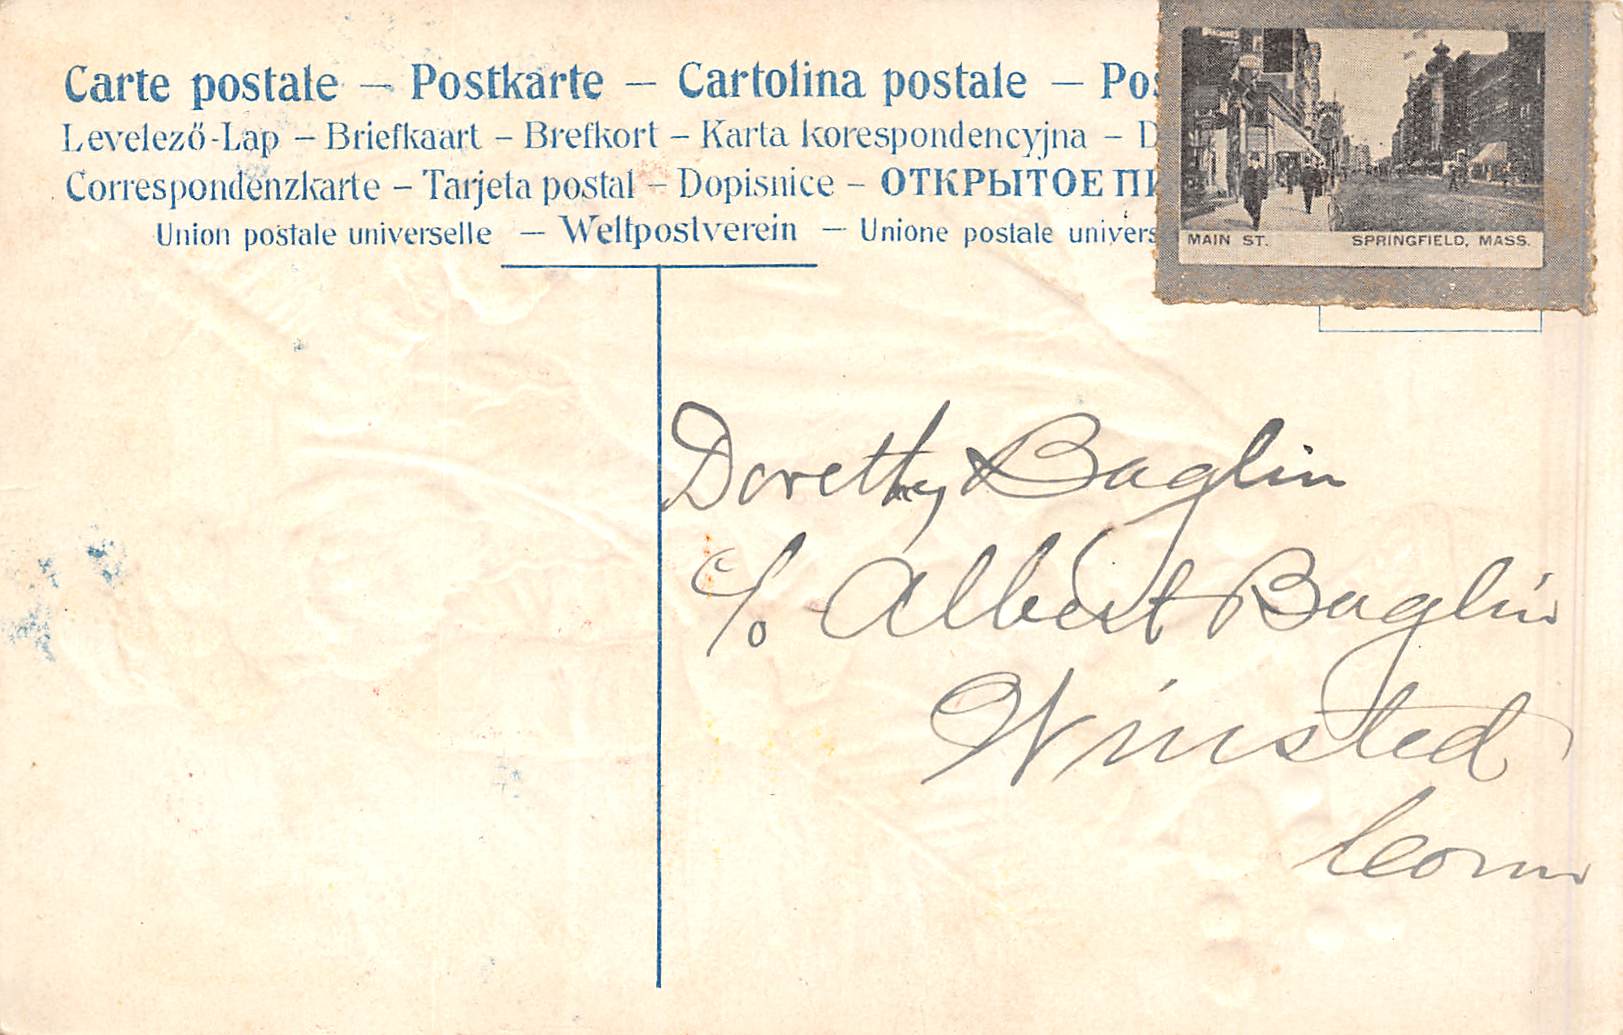 Carte postale — Postkarte — Cartolina postale — Pos
Levelező-Lap – Briefkaart – Brefkort – Karta korespondencyjna – D
Correspondenzkarte – Tarjeta postal – Dopisnice – ОТКРЫТОЕ ПИ
Union postale universelle — Weltpostverein — Unione postale univers
MAIN ST. SPRINGFIELD, MASS.
Dorethy Baglin
c/o Albert Baglin
Winsted
Conn